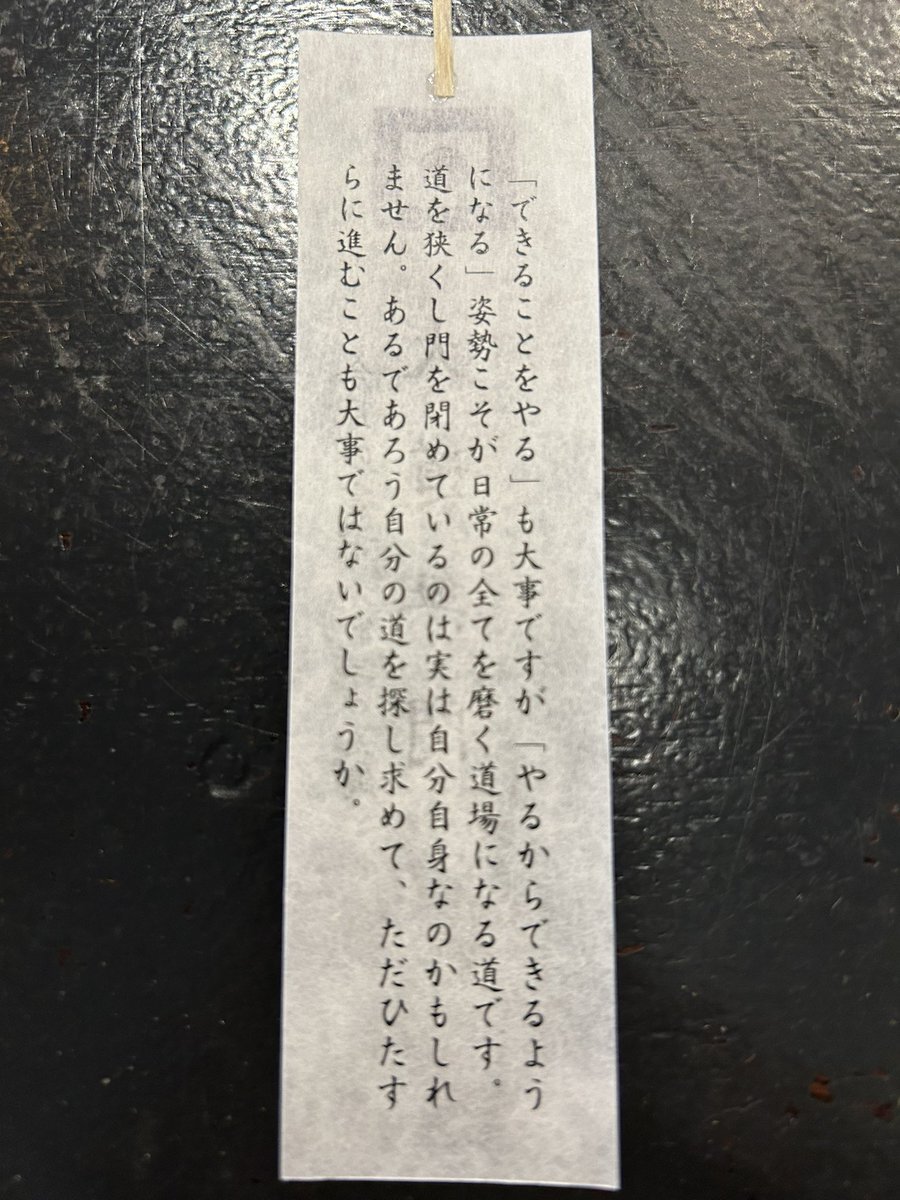 「できることをやる」も大事ですが「やるからできるよう
になる」姿勢こそが日常の全てを磨く道場になる道です。
道を狭くし門を閉めているのは実は自分自身なのかもしれ
ません。あるであろう自分の道を探し求めて、ただひたす
らに進むことも大事ではないでしょうか。